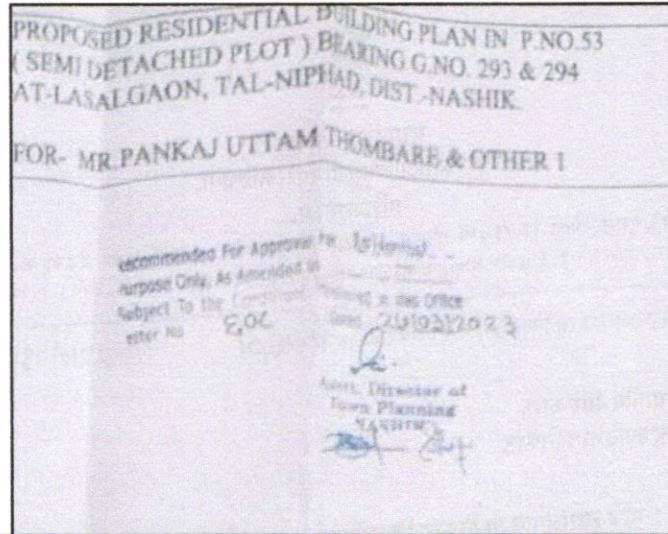 PROPOSED RESIDENTIAL BUILDING PLAN IN P.NO.53
( SEMI DETACHED PLOT ) BEARING G.NO. 293 & 294
AT-LASALGAON, TAL-NIPHAD, DIST.-NASHIK.
FOR- MR.PANKAJ UTTAM THOMBARE & OTHER 1
ecommended For Approval For
urpose Only, As Amended in
Subject To the Conditions
etter No
Office
Dated 24/03/2023
Asstt. Director of
Town Planning
NASHIK